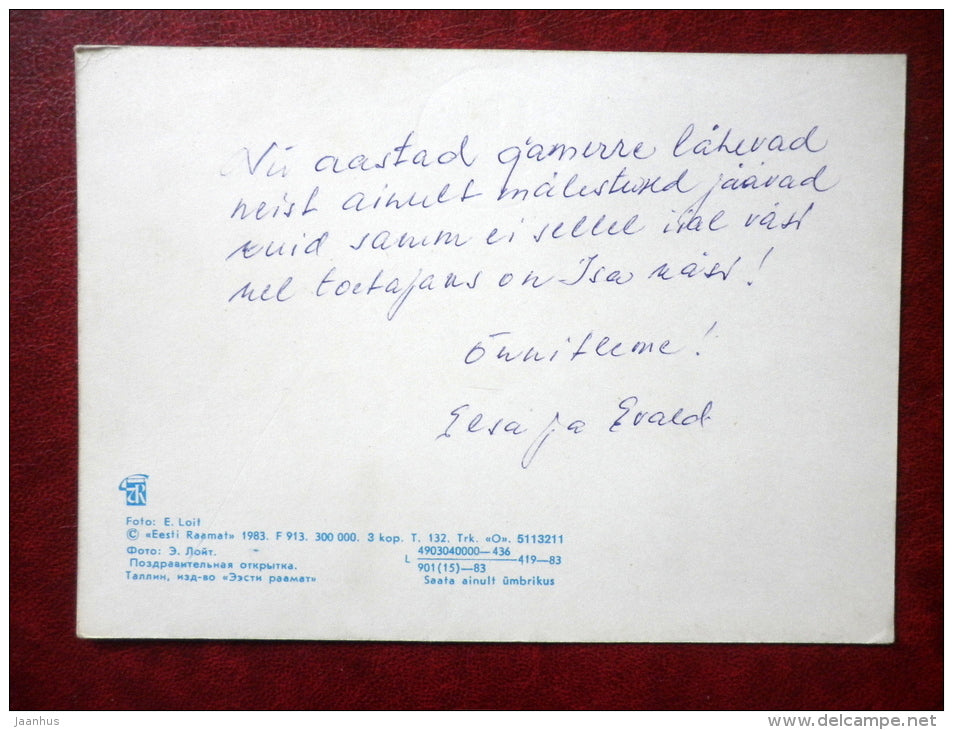 Nii aastad ajamerre lähevad
neist ainult mälestused jäävad
kuid samm ei sellel iial väsi
kel toetajaks on Isa käsi!
Õnnitleme!
Elsa ja Evald
Foto: E. Loit
© «Eesti Raamat» 1983. F 913. 300 000. 3 kop. T. 132. Trk. «O». 5113211
Фото: Э. Лойт.
Поздравительная открытка.
Таллин, изд-во «Ээсти раамат»
L 4903040000—436 419—83
901(15)—83
Saata ainult ümbrikus
jaanhus
www.delcampe.net